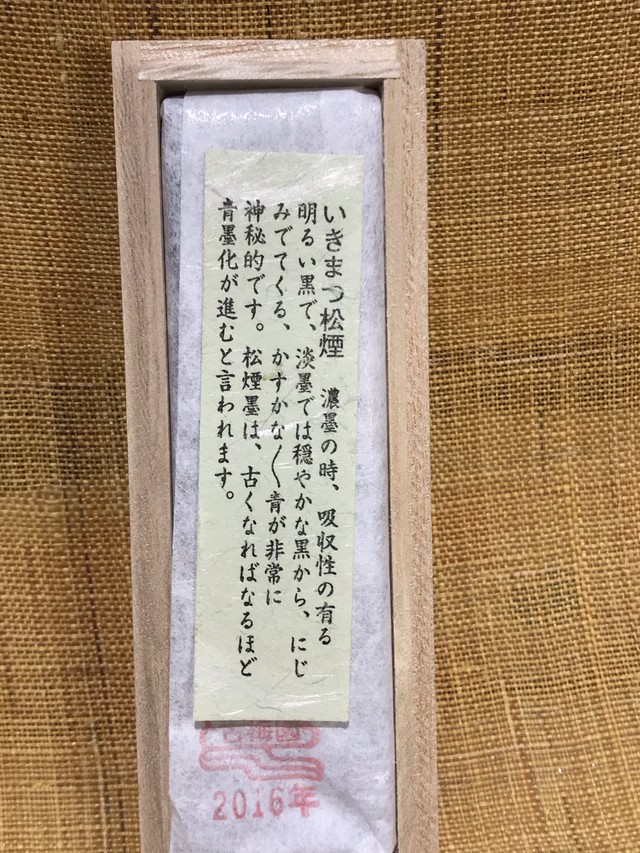 いきまつ松煙　濃墨の時、吸収性の有る
明るい黒で、淡墨では穏やかな黒から、にじ
みでてくる、かすかな〱青が非常に
神秘的です。松煙墨は、古くなればなるほど
青墨化が進むと言われます。
2016年